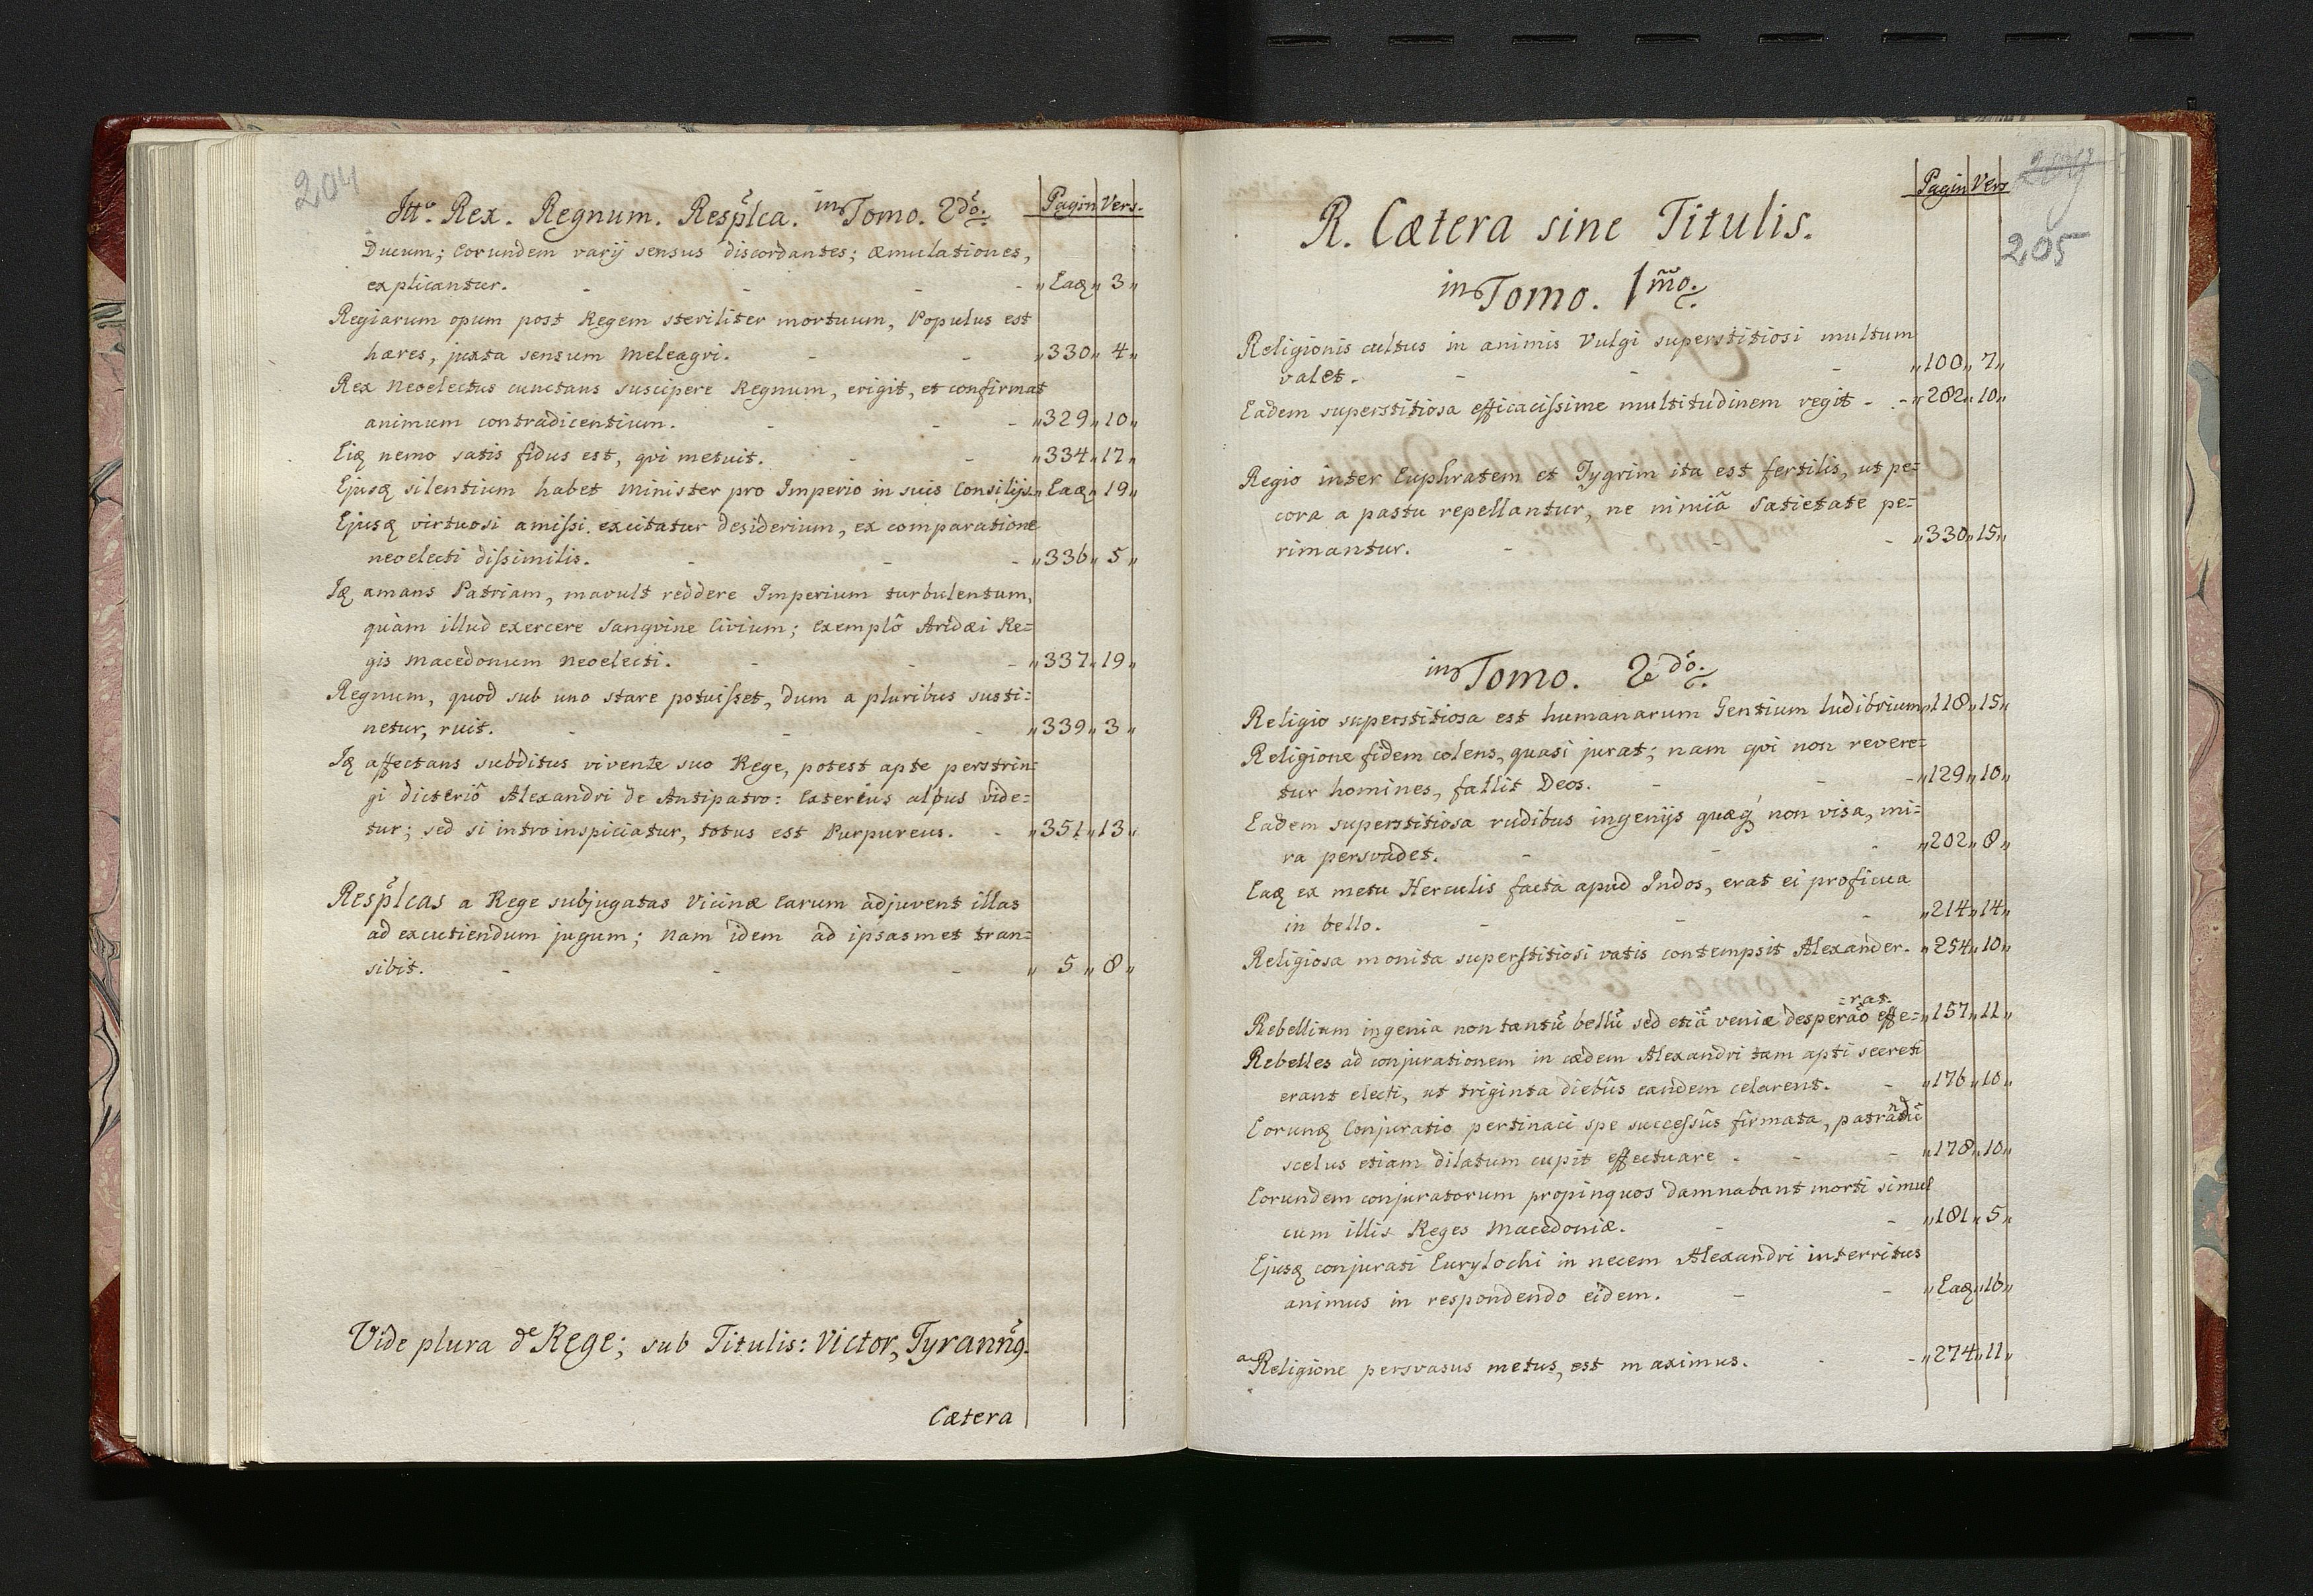 204
Itto. Rex. Regnum. Resplca. in Tomo. 2do.
Pagin Vers.
Ducum; Eorundem varij sensus discordantes; æmulationes,
explicantur. - - - - „Eaq„ 3„
Regiarum opum post Regem steriliter mortuum, Populus est
hæres, juxta sensum Meleagri. - - „330„ 4„
Rex Neoelectus cunctans suscipere Regnum, erigit, et confirmat
animum contradicentium. - - - „329„10„
Eiq nemo satis fidus est, qvi metuit. - - „334„17„
Ejusq silentium habet Minister pro Imperio in suis Consilijs „Eaq„ 19„
Ejusq virtuosi amissi excitatur desiderium, ex comparatione
neoelecti dissimilis. - - - „336„ 5„
Iq amans Patriam, mavult reddere Imperium turbulentum,
quàm illud exercere Sangvine Civium; Exemplô Aridæi Re=
gis Macedonum Neoelecti. - - - „337„19„
Regnum, quod sub uno stare potuisset, dum a pluribus susti=
netur, ruit. - - - „339„ 3„
Iq affectans subditus vivente suo Rege, potest apte perstrin=
gi dicteriô Alexandri de Antipatro: Exterius albus vide=
tur; sed si introinspiciatur, totus est Purpureus. - „351„13„
Resplcas a Rege subjugatas Vicinæ Earum adjuvent illas
ad excutiendum jugum; Nam idem ad ipsasmet tran=
sibit. - - - „ 5„ 8„
Vide plura de Rege; sub Titulis: Victor, Tyrann9.
Cætera
209
205
Pagin Vers
R. Cætera sine Titulis.
in Tomo. 1mo.
Religionis cultus in animis Vulgi superstitiosi multum
valet. - - - „100„ 7„
Eadem superstitiosa efficacissime multitudinem regit - - „282„10„
Regio inter Euphratem et Tygrim ita est fertilis, ut pe=
cora a pastu repellantur, ne nimiâ Satietate pe=
rimantur. - - - „330„15„
in Tomo. 2do.
Religio superstitiosa est humanarum Gentium ludibrium „118„15„
Religione fidem colens, quasi jurat; nam qvi non revere=
tur homines, fallit Deos. - - - „129„10„
Eadem superstitiosa rudibus ingenijs quæq non visa, mi=
ra persvadet. - - - „202„ 8„
Eaq ex metu Herculis facta apud Indos, erat ei proficua
in bello. - - - „214„14„
Religiosa monita superstitiosi vatis contempsit Alexander. „254„10„
=rat.
Rebellium ingenia non tantũ bellũ sed etiã veniæ desperão effe= „157„11„
Rebelles ad conjurationem in cædem Alexandri tam apti secreti
erant electi, ut triginta diebûs eandem celarent. - „176„10„
Eorunq Conjuratio pertinaci spe successûs firmata, patrandũ
scelus etiam dilatum cupit effectuare. - - „178„10„
Eorundem conjuratorum propinquos damnabant morti simul
cum illis Reges Macedoniæ. - - „181„ 5„
Ejusq conjurati Eurylochi in necem Alexandri interritus
animus in respondendo eidem. - - „Eaq„16„
a Religione persvasus metus, est maximus. - - „274„11„